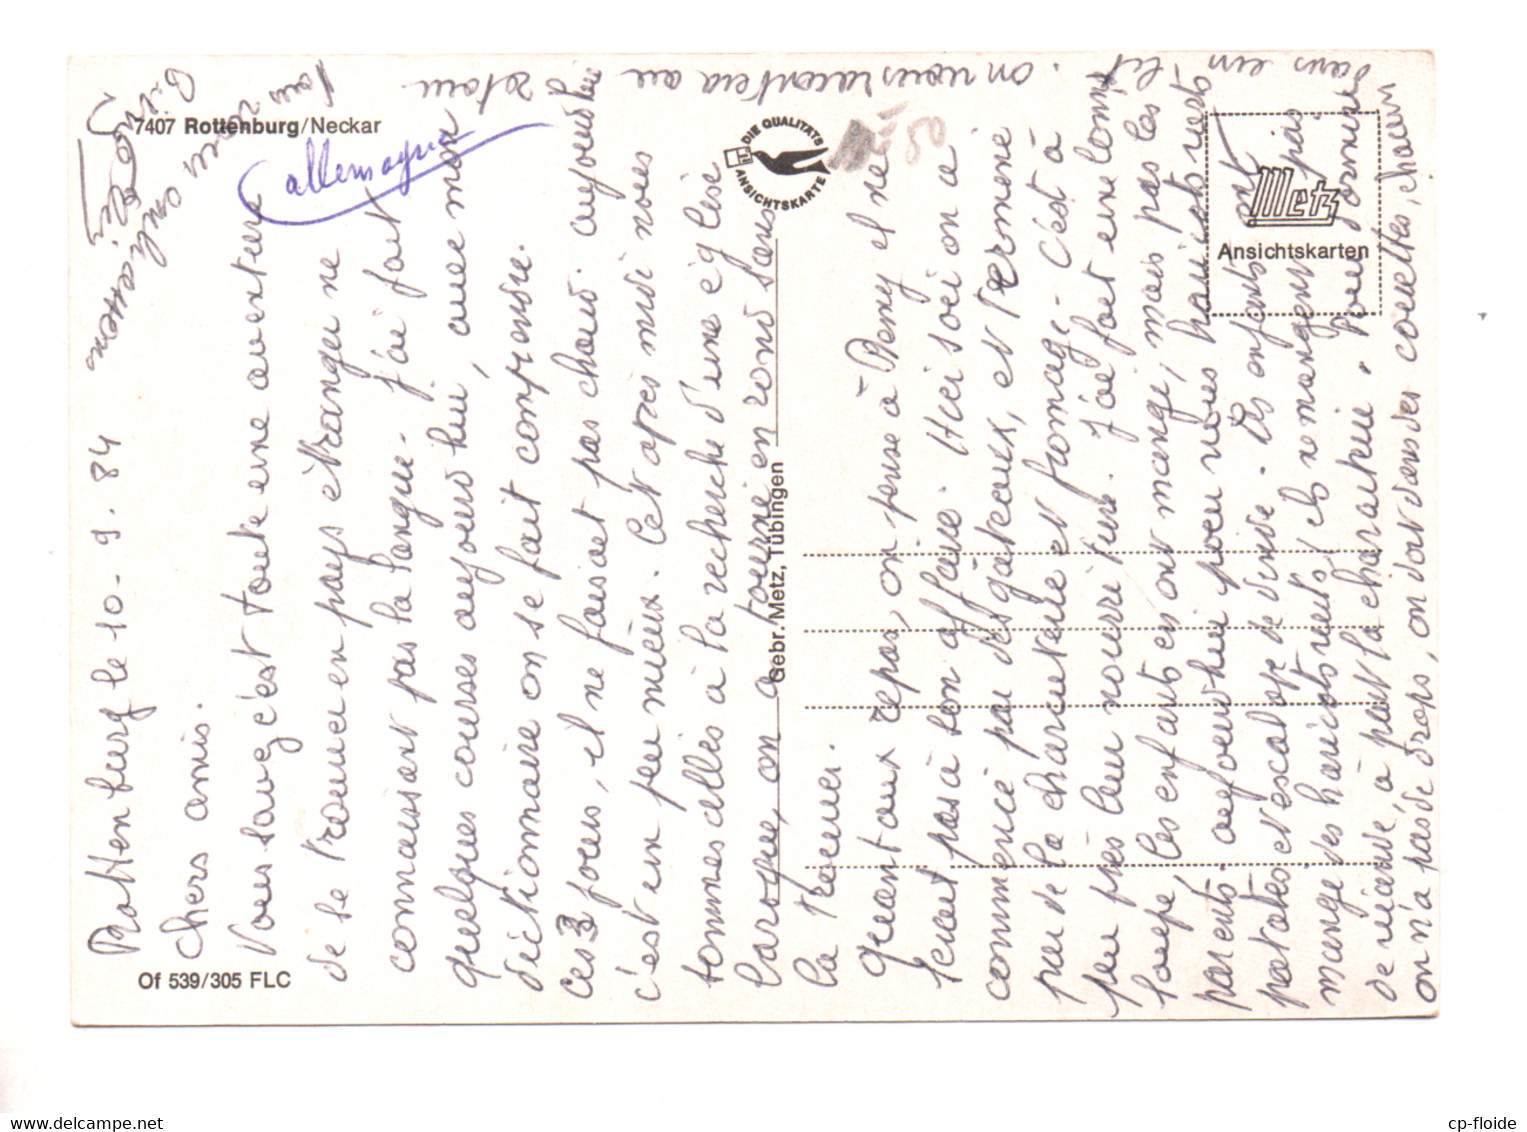 7407 Rottenburg/Neckar
allemagne
DIE QUALITÄTS
ANSICHTSKARTE
Metz
Ansichtskarten
Gebr. Metz, Tübingen
Of 539/305 FLC
Rottenburg le 10-9.84
chers amis.
Vous savez c'est toute une aventure
de se trouver en pays étranger ne
connaissant pas la langue. j'ai fait
quelques courses aujourd'hui, avec mon
dictionnaire on se fait comprendre.
Ces 3 jours, il ne faisait pas chaud. aujourd'hui
c'est un peu mieux. Cet après midi nous
sommes allés à la recherche d'une église
baroque, on a tourné en rond sans
la trouver.
quant aux repas, on pense à Remy il ne
serait pas à son affaire. Hier soir on a
commencé par des gâteaux, et terminé
par de la charcuterie et fromage. C'est à
peu près leur nourriture. J'ai fait une bonne
soupe, les enfants en ont mangé, mais pas les
parents. aujourd'hui pour nous haricots verts
patates et escalope de dinde. Les enfants ont
mangé des haricots verts, ils ne mangent pas
de viande, à part la charcuterie. Pour dormir
on n'a pas de draps, on dort dans des couettes, chacun
dans un lit. on vous racontera au
retour
Tous vous embrassons